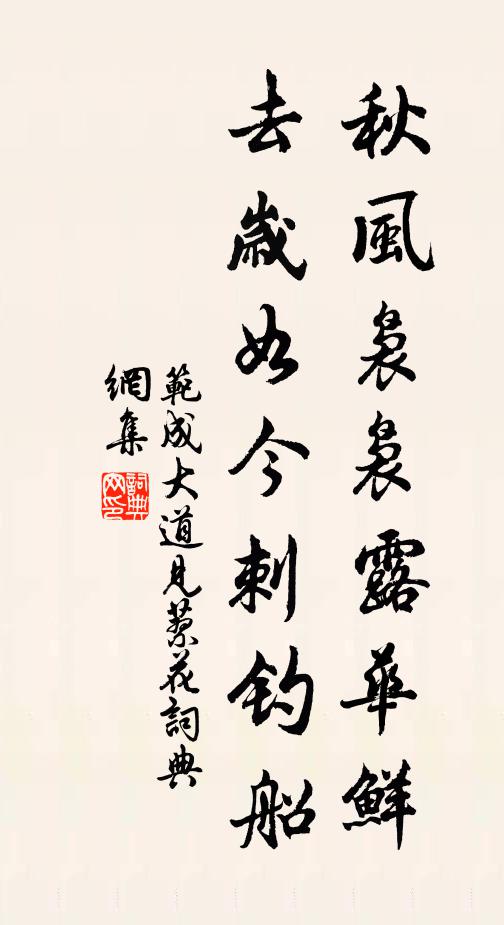 秋風裊裊露華鮮
去歲如今刺釣船
範成大道見蓼花詞典
網集
詞典
网印